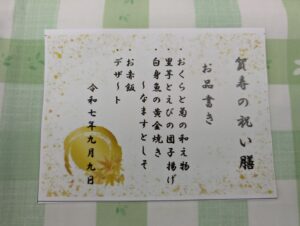 賀寿の祝い膳
お品書き
・おくらと菊の和え物
・里芋とえびの団子揚げ
・白身魚の黄金焼き
～なますとしそ
・お赤飯
・デザート
令和七年九月九日